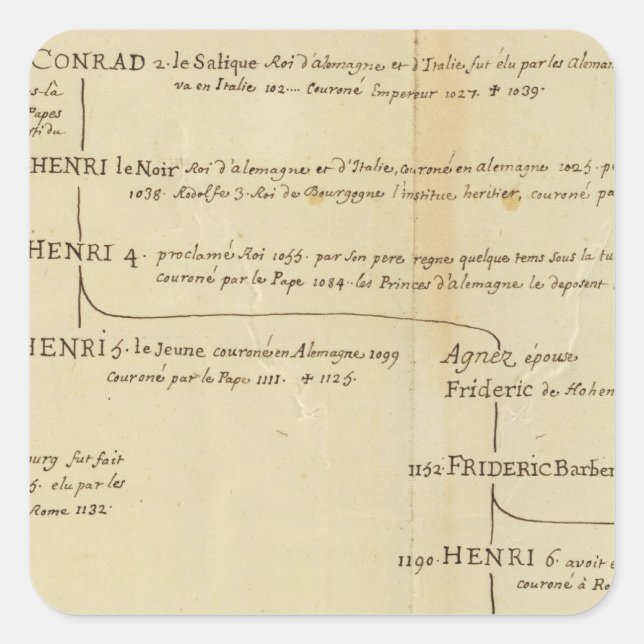 CONRAD 2. le Salique Roi d'alemagne et d'Italie fut élu par les Aleman
va en Italie 102.... Couroné Empereur 1027. ✝ 1039.
s-là
Papes
ti du
HENRI le Noir Roi d'alemagne et d'Italie, couroné en alemagne 1025. p
1038. Rodolfe 3. Roi de Bourgogne l'institue heritier, couroné pa
HENRI 4. proclamé Roi 1055. par son pere regne quelque tems sous la tu
Couroné par le Pape 1084. les Princes d'alemagne le deposent
HENRI 5. le Jeune couroné en Alemagne 1099
Couroné par le Pape 1111. ✝ 1125.
Agnez épouse
Frideric de Hohen
ourg fut fait
5. elu par les
Rome 1132.
1152. FRIDERIC Barber
1190. HENRI 6. avoit é
couroné à Ro